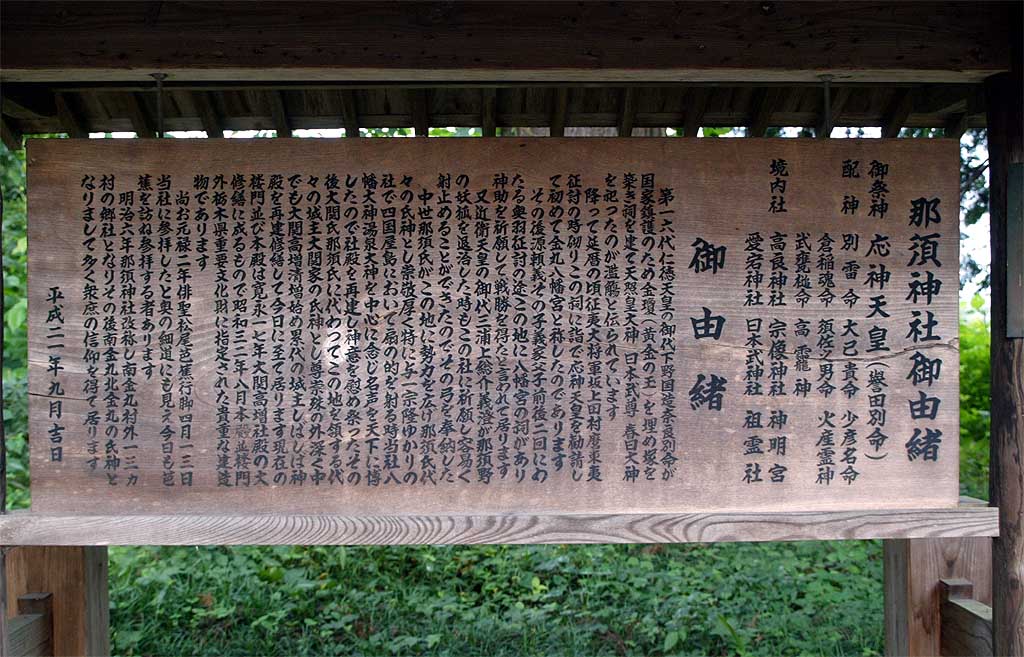 那須神社御由緒
御祭神　応神天皇（誉田別命）
配神　別雷命　大己貴命　少彦名命
倉稲魂命　須佐之男命　火産霊神
武甕槌命　高龗神
境内社　高良神社　宗像神社　神明宮
愛宕神社　日本武神社　祖霊社
御由緒
第一六代仁徳天皇の御代下野国造奈良別命が
国家鎮護のため金瓊（黄金の玉）を埋め塚を
築き祠を建て天照皇大神　日本武尊　春日大神
を祀ったのが濫觴と伝られています
降って延暦の頃征夷大将軍坂上田村麿東夷
征討の時砌りこの祠に詣で応神天皇を勧請し
て初めて金丸八幡宮と称したのであります
その後源頼義その子義家父子前後二回にわ
たる奥羽征討の途この地に八幡宮の祠があり
神助を祈願して戦勝を得たと言われて居ります
又近衛天皇の御代三浦上総介義澄が那須野
の妖狐を退治した時もこの社に祈願し容易く
射止めることができたのでその弓を奉納した
中世那須氏がこの地に勢力を広げ那須氏代
々の氏神とし崇敬厚く特に与一宗隆ゆかりの
社で四国屋島において扇の的を射る時当社八
幡大神湯泉大神を中心に念じ名声を天下に博
したので社殿を再建し神意を慰め祭ったその
後大関氏那須氏に代わってこの地を領する代
々の城主大関家の氏神とし尊崇殊の外深く中
でも大関高増清増始め累代の城主しばしば神
殿を再建修繕して今日に至て居ります現在の
楼門並び本殿は寛永一七年大関高増社殿の大
修繕に成るもので昭和三二年八月本殿並楼門
外栃木県重要文化財に指定された貴重な建造
物であります
尚お元禄二年俳聖松尾芭蕉行脚四月一三日
当社に参拝したと奥の細道にも見え今日も芭
蕉を訪ね参拝する者あります
明治六年那須神社改称し南金丸村外一三カ
村の郷社となりその後南金丸北金丸の氏神と
なりまして多く衆庶の信仰を得て居ります
平成二一年九月吉日